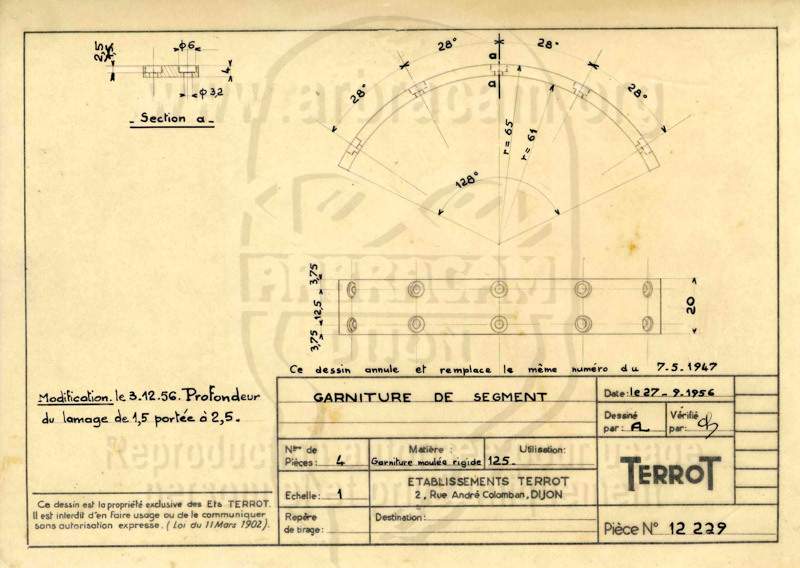 2,5
1,5
Φ6
4
Φ3,2
Section a
28°
28°
28°
28°
a
a
r= 65
r= 61
128°
3,75
12,5
3,75
20
Ce dessin annule et remplace le même numéro du 7.5.1947
Modification. le 3.12.56. Profondeur
du lamage de 1,5 portée à 2,5.
GARNITURE DE SEGMENT
Date: le 27-9.1956
Dessiné par:
Vérifié par:
Nbre de Pièces: 4
Matière: Garniture moulée rigide
Utilisation: 125.
Echelle: 1
ETABLISSEMENTS TERROT
2, Rue André Colomban, DIJON
TERROT
Repère de tirage:
Destination:
Pièce N° 12 229
Ce dessin est la propriété exclusive des Ets TERROT.
Il est interdit d'en faire usage ou de le communiquer
sans autorisation expresse. (Loi du 11 Mars 1902).
www.arbracam.org
ARBRACAM
DIJON
Reproduction autorisée pour usage
personnel et privé uniquement